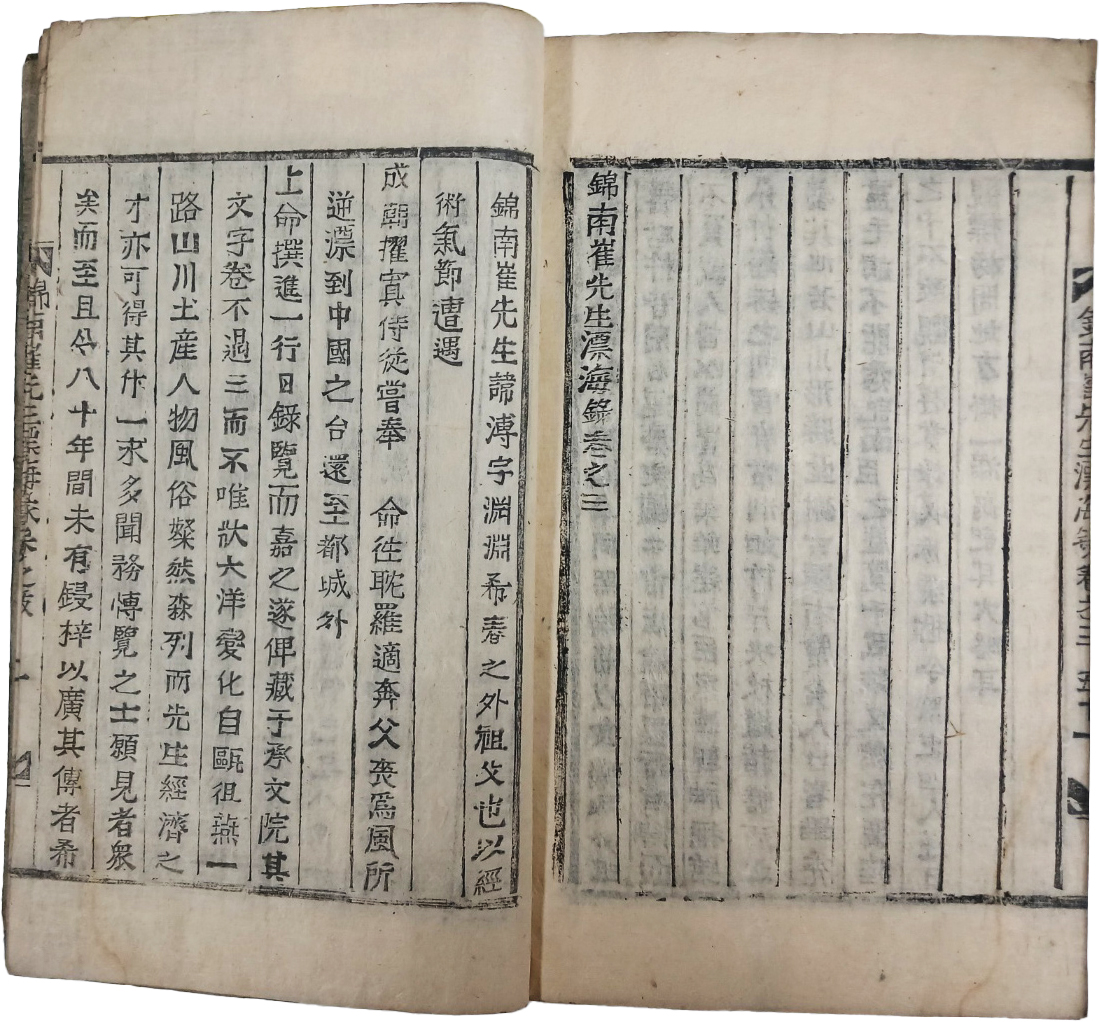 錦南崔先生漂海錄卷之三 五十一
錦南崔先生漂海錄卷之三
錦南崔先生諱溥字淵淵希春之外祖父也以經
術氣節遭遇
成 朝擢寘侍從嘗奉 命徃耽羅適奔父喪爲風所
逆漂到中國之台還至都城外
上命撰進一行日錄覽而嘉之遂俾藏于承文院其
文字卷不過三而不唯狀大洋變化自甌徂燕一
路山川土産人物風俗粲然森列而先生經濟之
才亦可得其什一求多聞務愽覽之士願見者衆
矣而至且今八十年間未有鋟梓以廣其傳者希
錦南崔先生漂海錄卷之跋 一